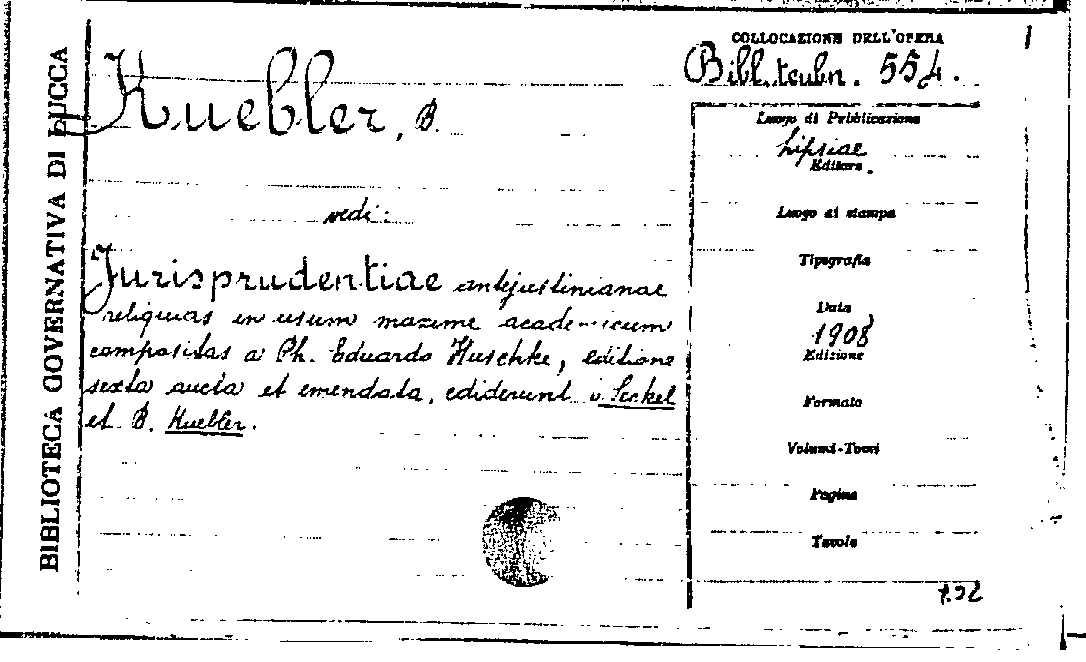 BIBLIOTECA GOVERNATIVA DI LUCCA
Kuebler, B.
vedi:
Jurisprudentiae antejustinianae
reliquias in usum maxime academicum
compositas a Ph. Eduardo Huschke, editione
sexta aucta et emendata, ediderunt Seckel
et B. Kuebler.
COLLOCAZIONE DELL'OPERA
Bibl. teubn. 554.
Luogo di Pubblicazione
Lipsiae
Editore
Luogo di stampa
Tipografia
Data
1908
Edizione
Formato
Volumi-Tomi
Pagine
Tavole